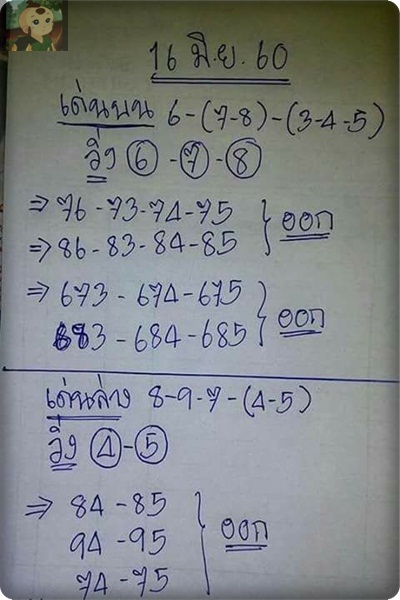 16 มิ.ย. 60
เด่นบน 6-(7-8)-(3-4-5)
วิ่ง 6-7-8
⇒ 76-73-74-75
⇒ 86-83-84-85 } ออก
⇒ 673-674-675
683-684-685 } ออก
เด่นล่าง 8-9-7-(4-5)
วิ่ง 4-5
⇒ 84-85
94-95 } ออก
74-75